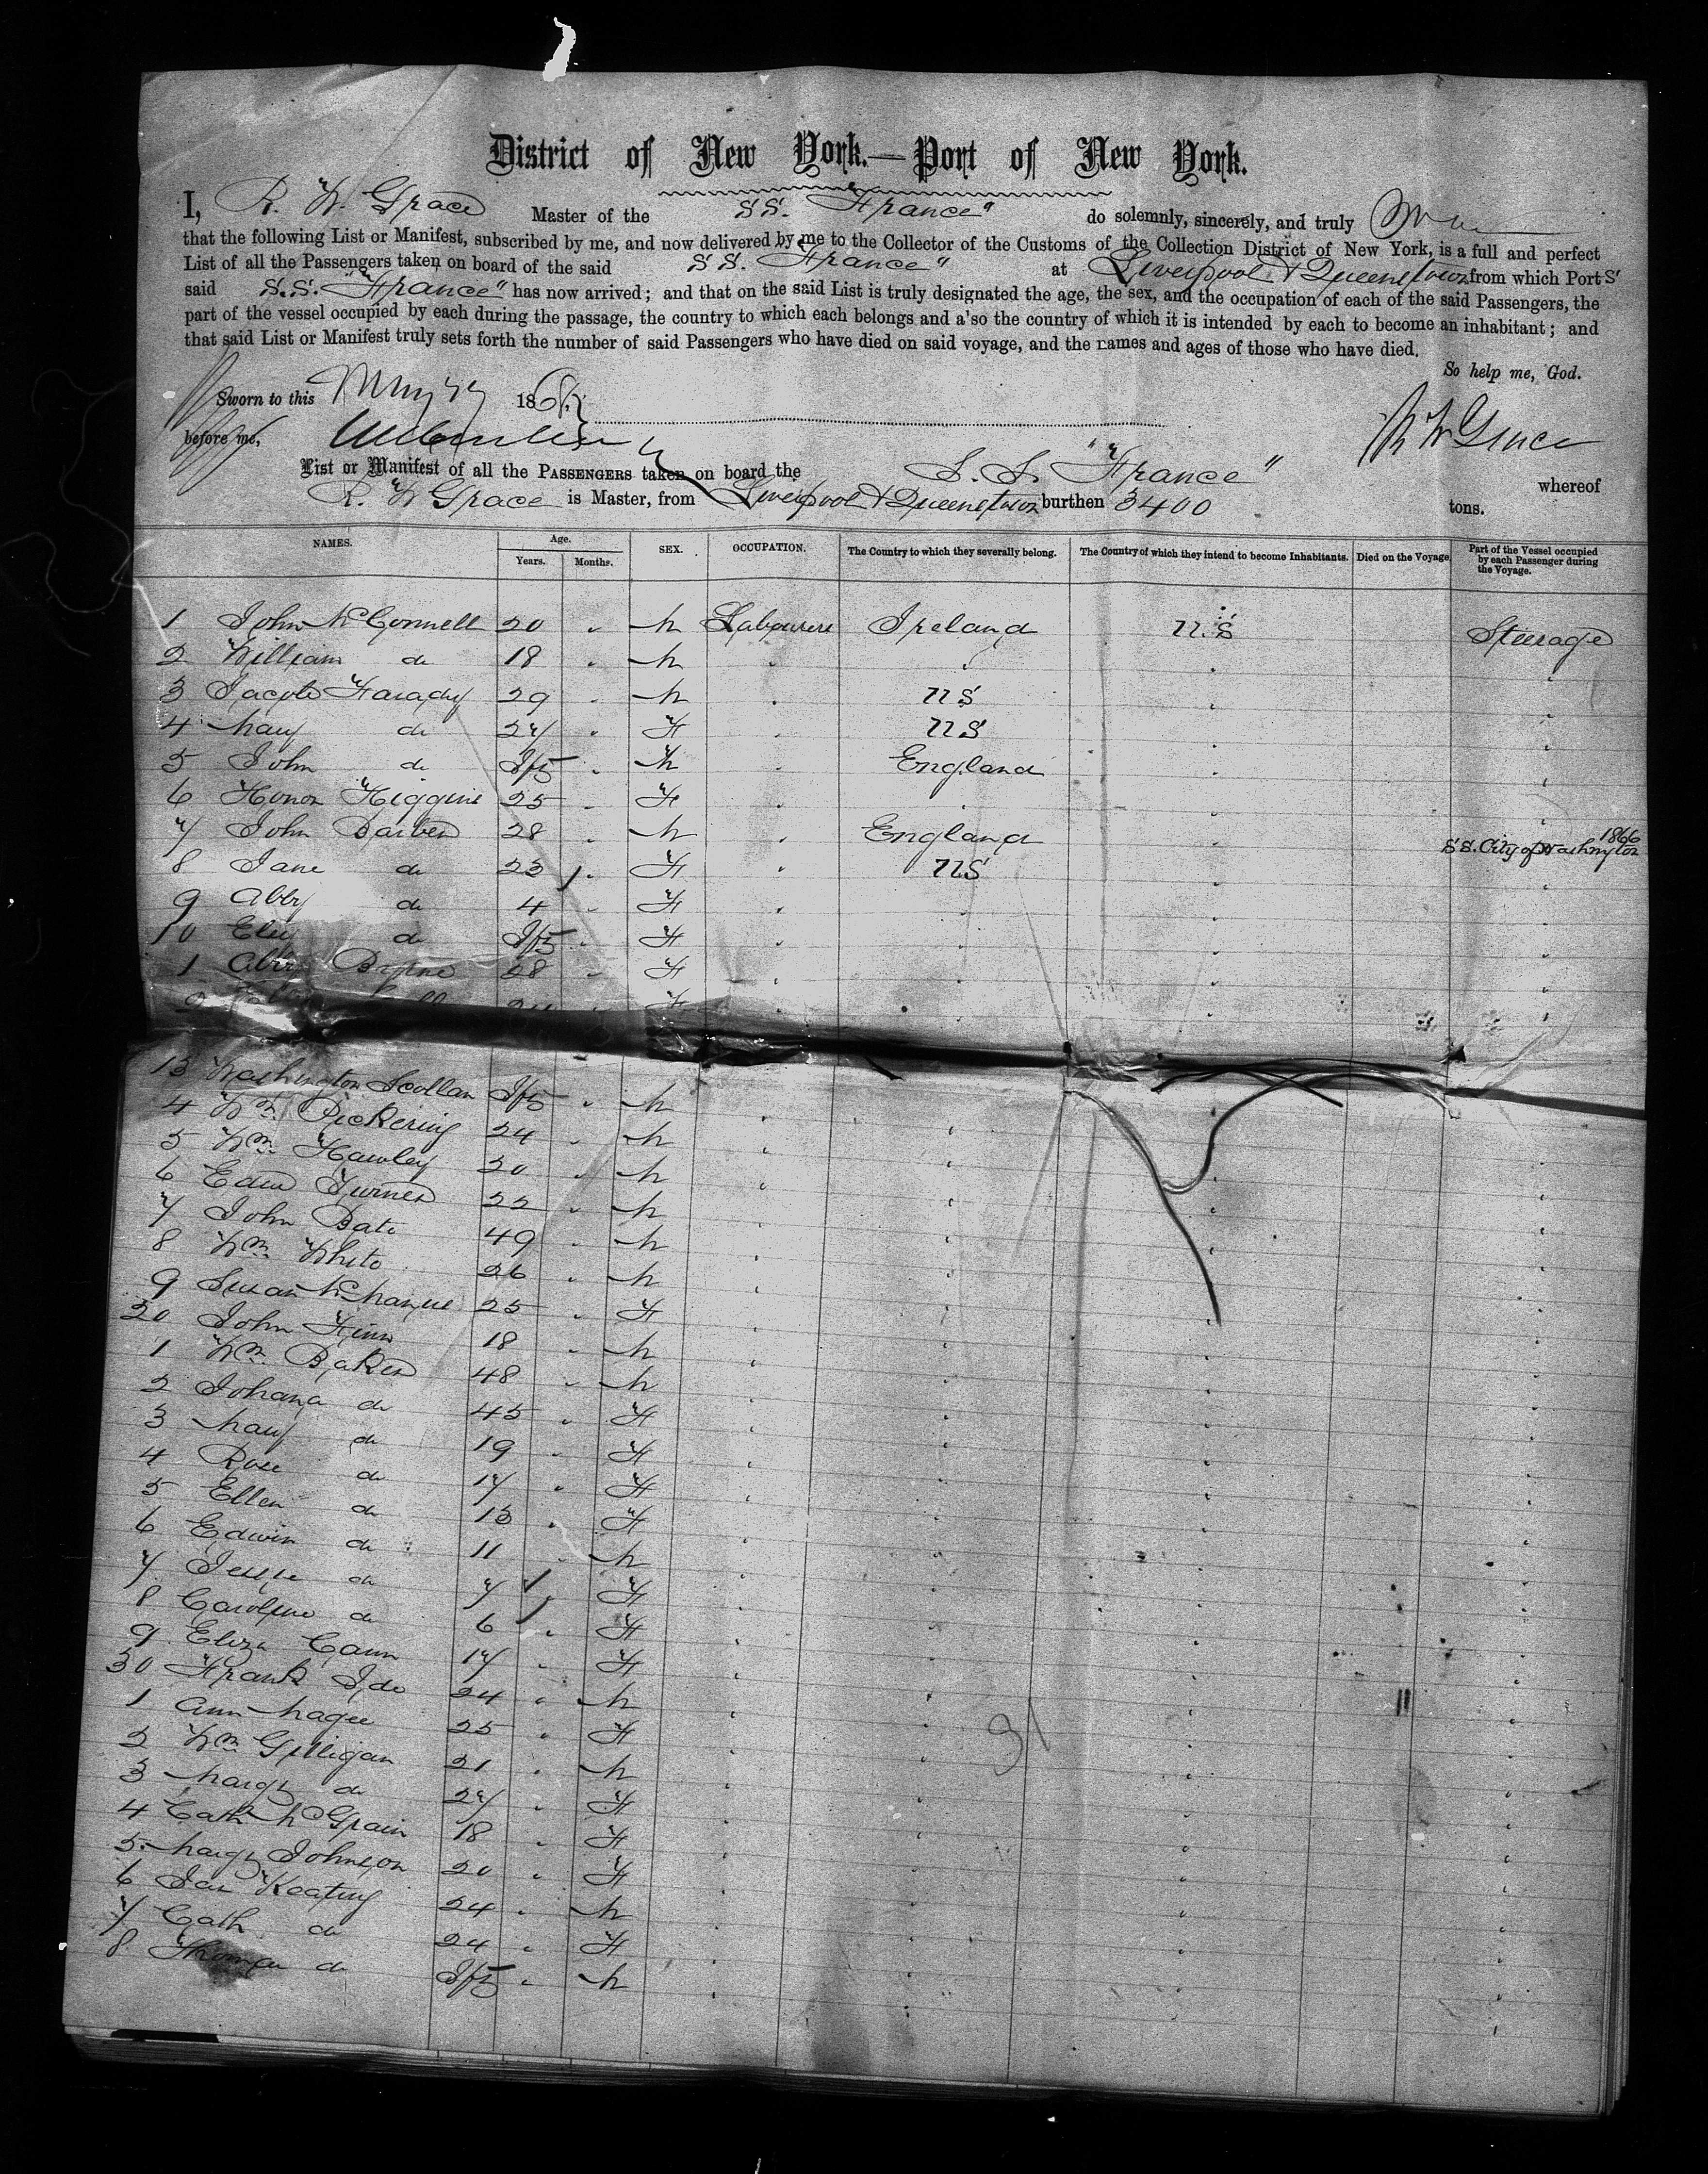 District of New York.—Port of New York.
I, R. W. Grace Master of the SS. "France" do solemnly, sincerely, and truly
that the following List or Manifest, subscribed by me, and now delivered by me to the Collector of the Customs of the Collection District of New York, is a full and perfect
List of all the Passengers taken on board of the said SS. "France" at Liverpool & Queenstown from which Port S
said S.S. "France" has now arrived; and that on the said List is truly designated the age, the sex, and the occupation of each of the said Passengers, the
part of the vessel occupied by each during the passage, the country to which each belongs and a'so the country of which it is intended by each to become an inhabitant; and
that said List or Manifest truly sets forth the number of said Passengers who have died on said voyage, and the names and ages of those who have died.
So help me, God.
Sworn to this May 186
before me, R W Grace
List or Manifest of all the PASSENGERS taken on board the S. S. "France" whereof
R. W Grace is Master, from Liverpool & Queenstown burthen 3400 tons.
NAMES. Age. Years. Months. SEX. OCCUPATION. The Country to which they severally belong. The Country of which they intend to become Inhabitants. Died on the Voyage. Part of the Vessel occupied by each Passenger during the Voyage.
1 John McConnell 20 " M Labourers Ireland U.S Steerage
2 William do 18 " M " " " "
3 Jacob Farady 29 " M " US " "
4 Mary do 27 " F " US " "
5 John do Inft " M " England " "
6 Honor Higgins 25 " F " " " "
7 John Barber 28 " M " England " 1866 SS. City of Washington
8 Jane do 23 " F " US " "
9 Abby do 4 " F " " " "
10 do Inft " F " " " "
1 Abby 28 " F " " " "
2
13 Washington Scollan Inft " M " " " "
4 Wm Pickering 24 " M " " " "
5 Wm Hawley 30 " M " " " "
6 Edwd Turner 22 " M " " " "
7 John Bate 49 " M " " " "
8 Wm White 26 " M " " " "
9 Susan 25 " F " " " "
20 John Finn 18 " M " " " "
1 Wm Baker 48 " M " " " "
2 Johana do 45 " F " " " "
3 Mary do 19 " F " " " "
4 Rose do 17 " F " " " "
5 Ellen do 13 " F " " " "
6 Edwin do 11 " M " " " "
7 Jessie do 7 " F " " " "
8 Caroline do 6 " F " " " "
9 Eliza Cann 17 " F " " " "
30 Frank Ide 24 " M " " " "
1 Ann Magee 25 " F " " " "
2 Wm Gilligan 21 " M " " " "
3 Margt do 27 " F " " " "
4 Cath McGrain 18 " F " " " "
5 Margt Johnson 20 " F " " " "
6 Jas Keating 24 " M " " " "
7 Cath do 24 " F " " " "
8 Thomas do Inft " M " " " "
31